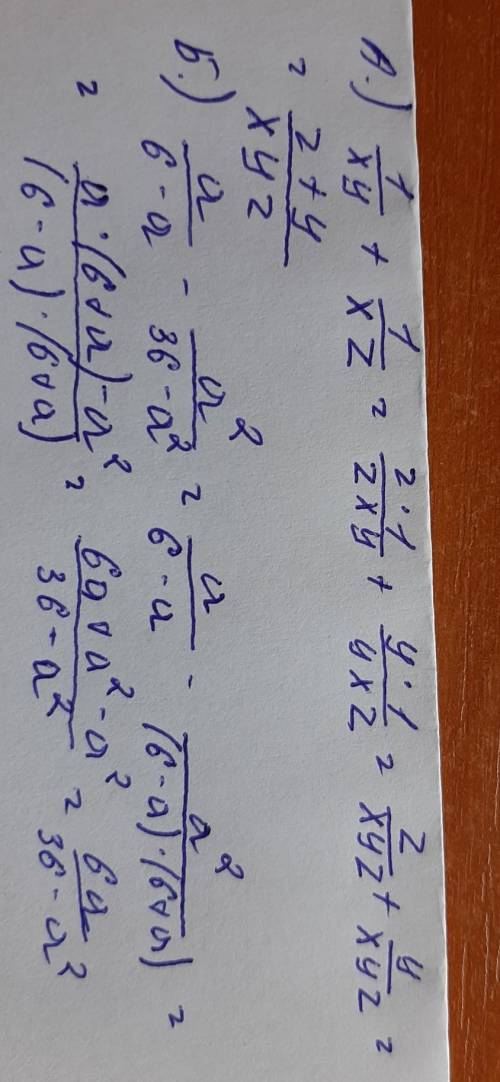 А.) 1/xy + 1/xz = z·1/zxy + y·1/yxz = z/xyz + y/xyz =
= z+y/xyz
Б.) a/6-a - a²/36-a² = a/6-a - a²/(6-a)·(6+a) =
= a·(6+a)-a²/(6-a)·(6+a) = 6a+a²-a²/36-a² = 6a/36-a²